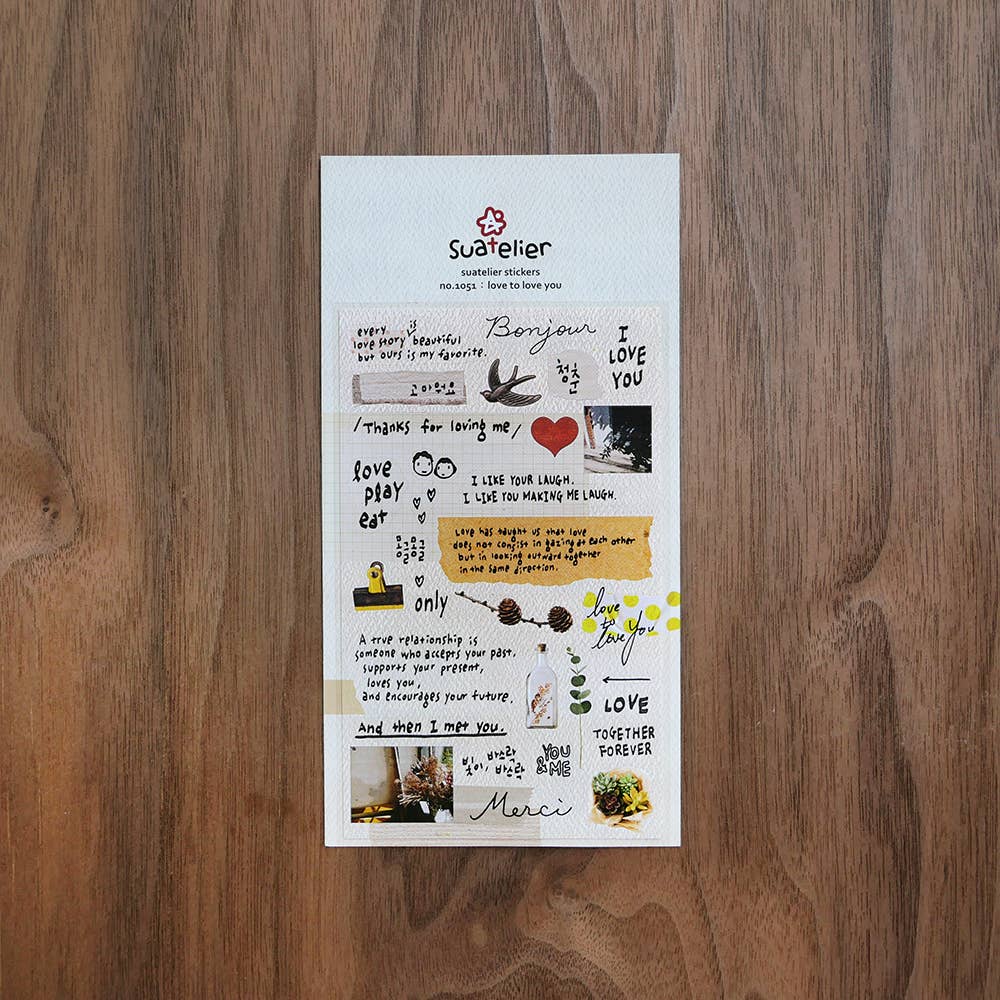 Suatelier
suatelier stickers
no.1051 : love to love you
every is
love story beautiful
but ours is my favorite.
Bonjour
I
LOVE
YOU
고마워요
청춘
/Thanks for loving me/
love
play
eat
I LIKE YOUR LAUGH.
I LIKE YOU MAKING ME LAUGH.
Love has taught us that love
does not consist in gazing at each other
but in looking outward together
in the same direction.
몽글
몽글
only
love
to
love You
A true relationship is
someone who accepts your past,
supports your present,
loves you,
and encourages your future.
LOVE
And then I met you.
TOGETHER
FOREVER
빛이, 바스락
바스락
YOU
&ME
Merci